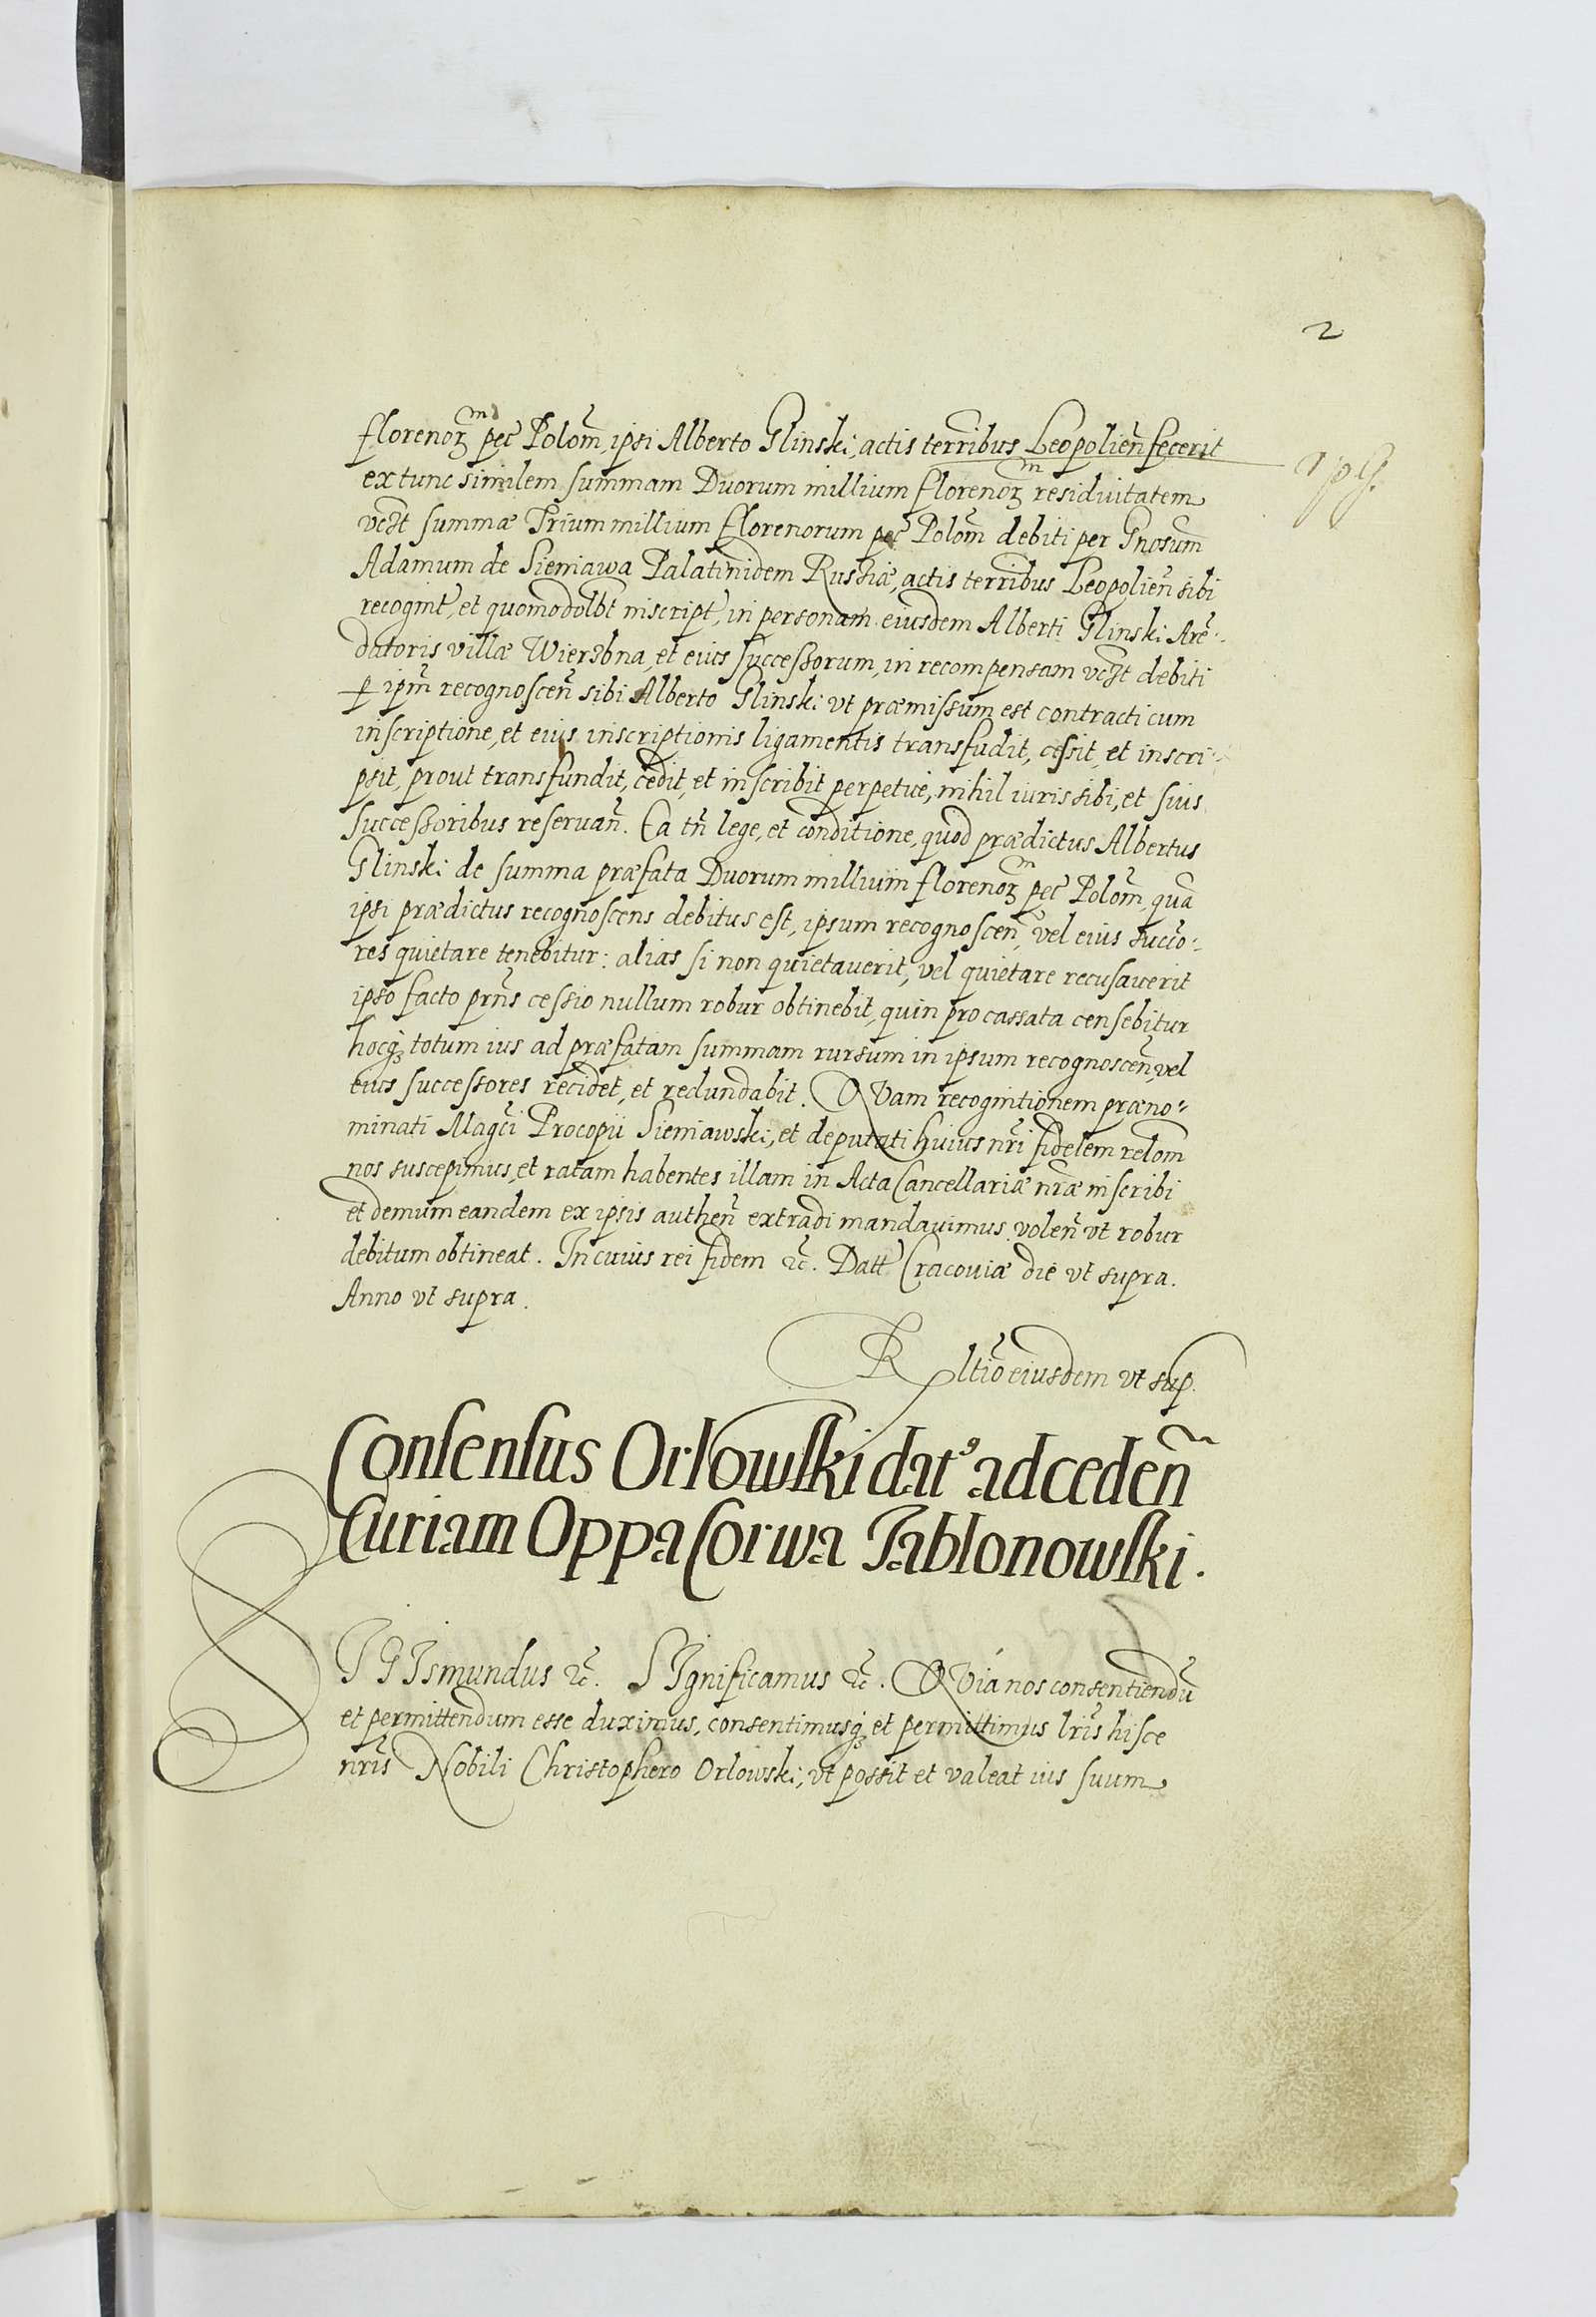 2
florenoꝝ̃ pec̃ Polom̃, ipsi Alberto Glinski, actis terribus Leopolień fecerit
ex tunc similem summam Duorum millium florenoꝝ̃ residuitatem
vcȝt summæ Trium millium florenorum pec̃ Polom̃ debiti per Gnosum̃
Adamum de Sieniawa Palatinidem Russiæ, actis terribus Leopolień sibi
recognit̃, et quomodolb̃t inscript̃, in personam eiusdem Alberti Glinski Arẽ-
datoris villæ Wierzbna, et eius successorum, in recompensam vcȝt debiti
ꝑ ipm̃ recognoscen̄ sibi Alberto Glinski vt præmissum est contracti cum
inscriptione, et eius inscriptionis ligamentis transfudit, cessit, et inscri-
psit, prout transfundit, cedit, et inscribit perpetue, nihil iuris sibi, et suis
successoribus reservan̄. Ea tn̄ lege, et conditione, quod prædictus Albertus
Glinski de summa præfata Duorum millium florenoꝝ̃ pec̃ Polom̃, quã
ipsi prædictus recognoscens debitus est, ipsum recognoscen̄, vel eius succõ-
res quietare tenebitur: alias si non quietauerit, vel quietare recusauerit
ipso facto prn̄s cessio nullum robur obtinebit, quin pro cassata censebitur
hocqꝫ totum ius ad præfatam summam rursum in ipsum recognoscen̄, vel
eius successores recidet, et redundabit. QVam recognitionem præno-
minati Magc̃i Procopii Sieniawski, et deputati huius nr̃i fidelem relom̃
nos suscepimus, et ratam habentes illam in Acta Cancellariæ nr̃æ inscribi
et demum eandem ex ipsis authen̄ extradi mandauimus, volen̄ vt robur
debitum obtineat. In cuius rei fidem ꝛc̃. Datt̃ Cracouiæ die vt supra.
Anno vt supra.
Rltĩo eiusdem vt sup.
Consensus Orlowski datꝰ ad ceden̄
Curiam Oppa Corwa Jablonowski.
SIGIsmundus ꝛc̃. SIgnificamus ꝛc̃. QVia nos consentiendũ
et permittendum esse duximus, consentimusqꝫ et permittimus lr̃is hisce
nr̃is Nobili Christophero Orlowski, vt possit et valeat ius suum